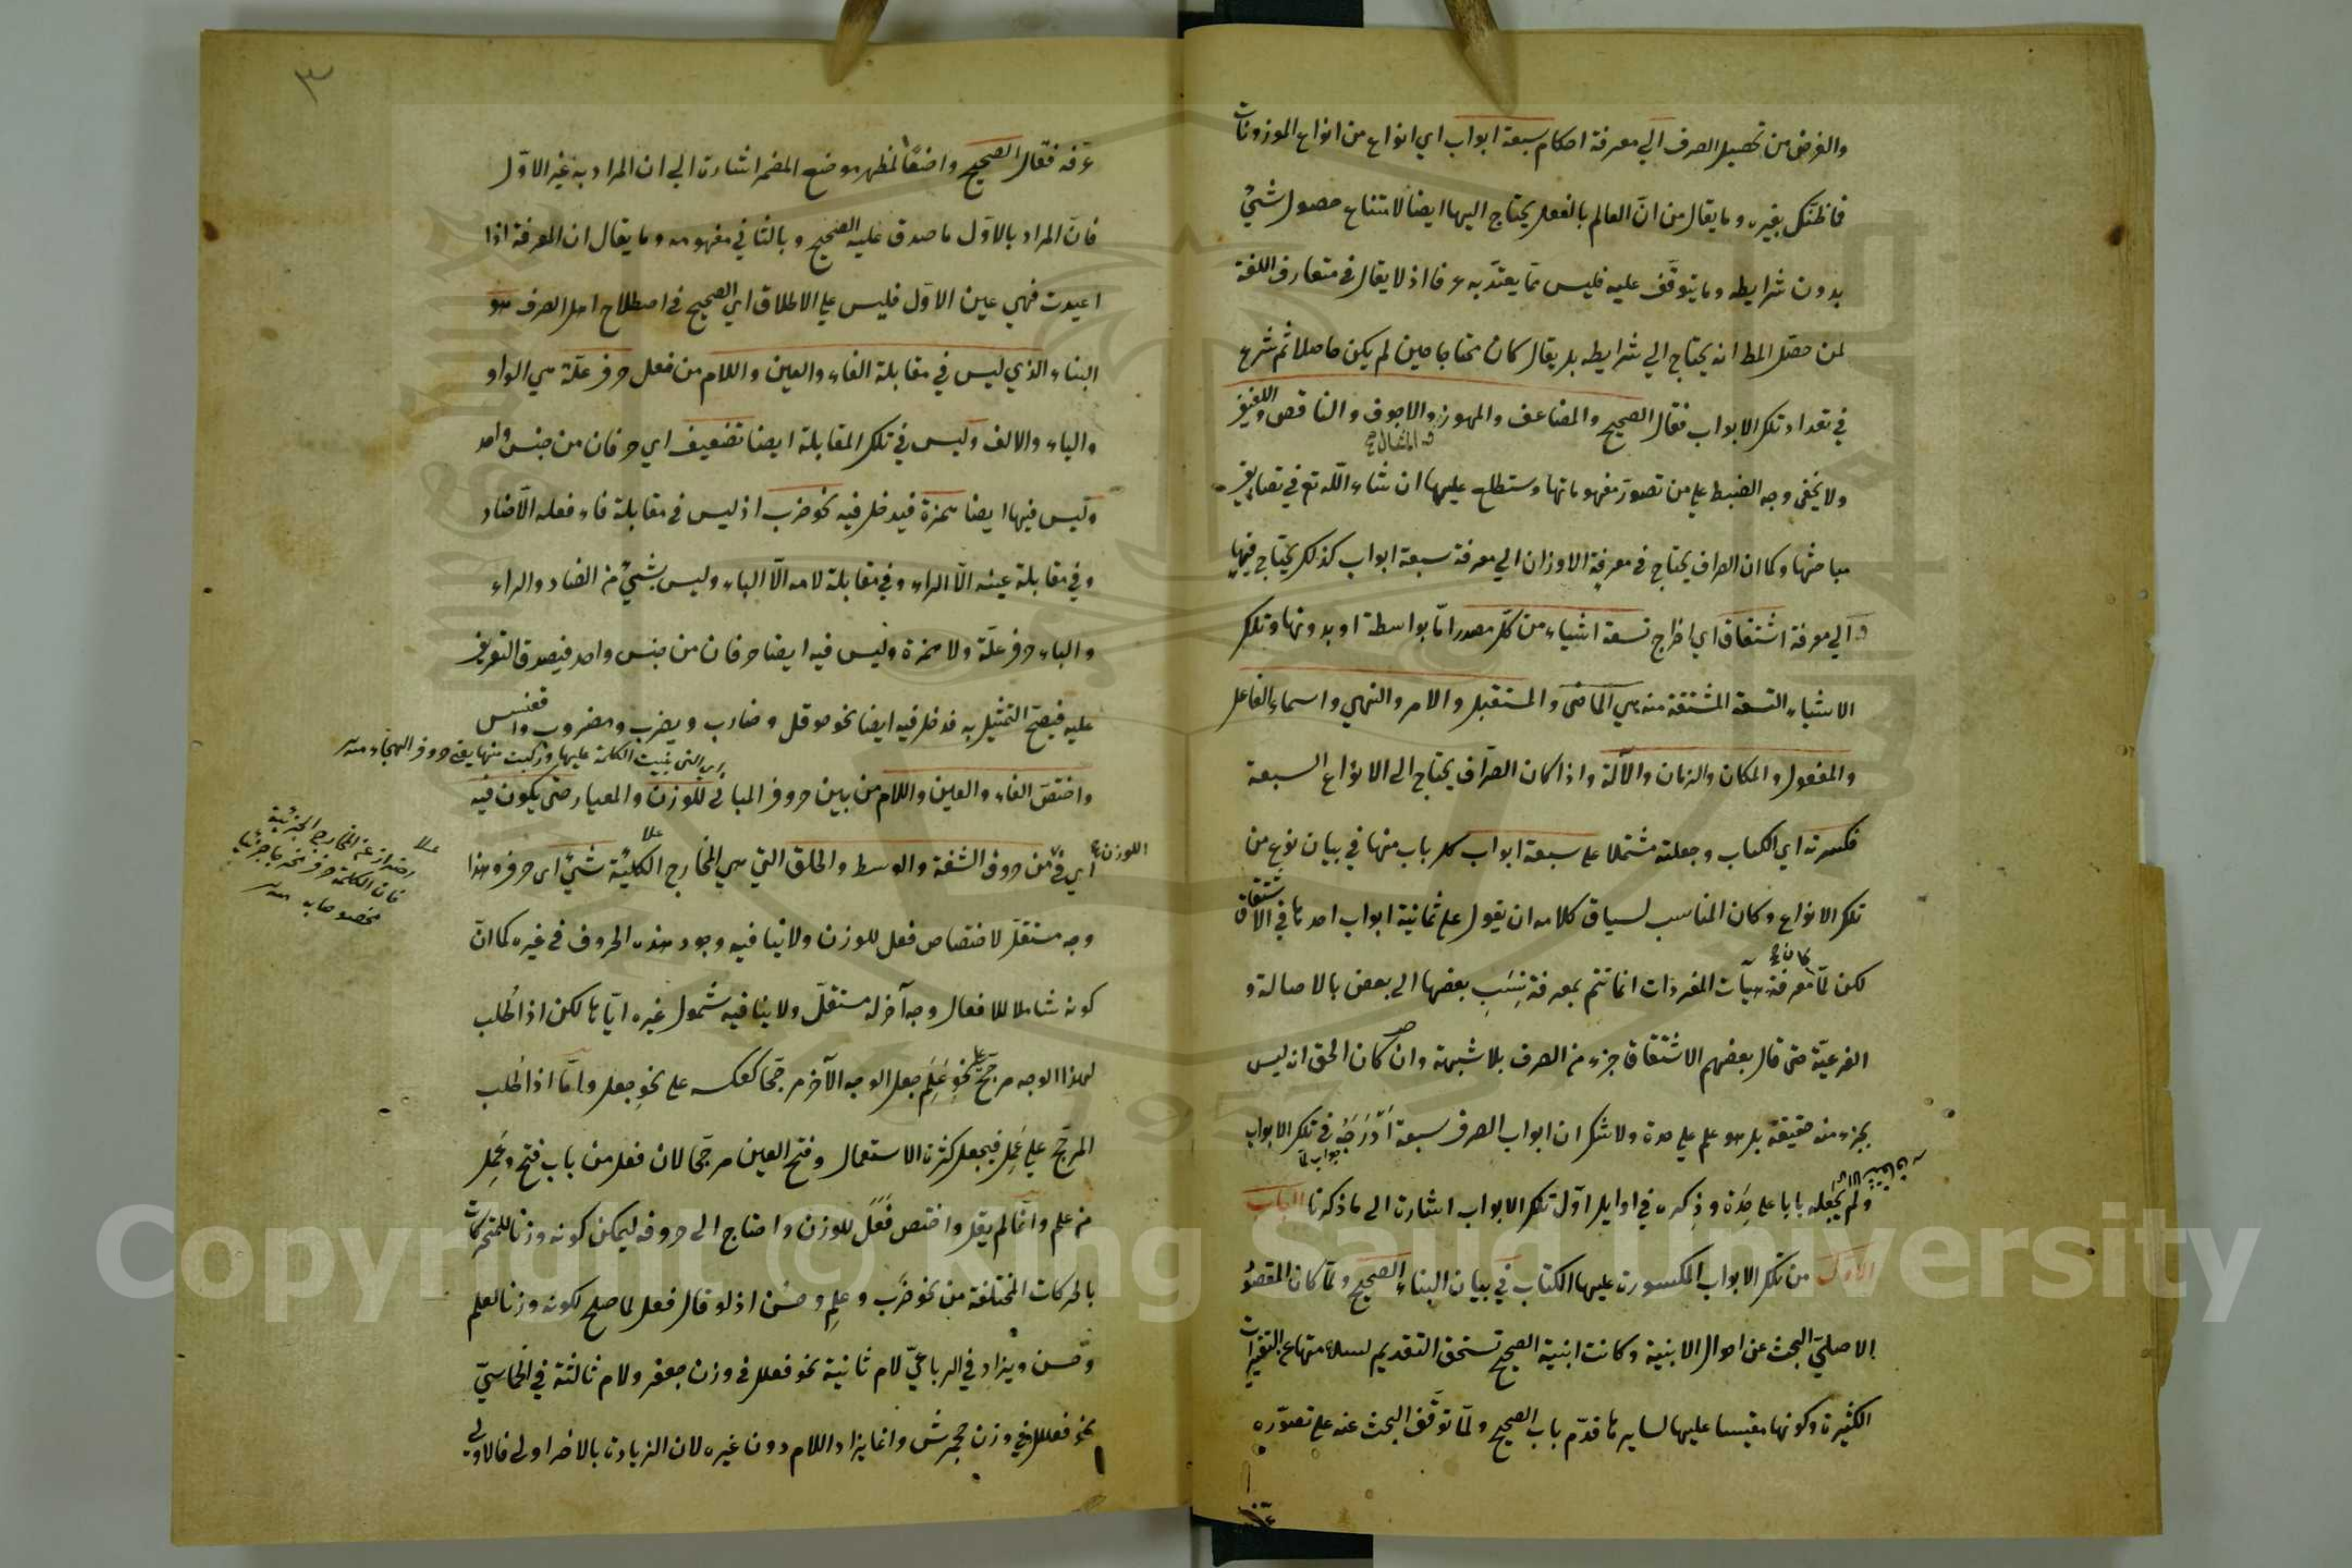 والغرض من تحصيل الصرف الي معرفة احكام سبعة ابواب اي انواع من انواع الموزونات
فما ظنك بغيره وما يقال من انّ العالم بالفعل يحتاج اليها ايضا لامتناع حصول شيءٍ
بدون شرايطه وما يتوقّف عليه فليس ممّا يعتدّ به عرفا اذ لا يقال في متعارف اللغة
لمن حصّل المط انه يحتاج الي شرايطه بل يقال كان محتاجا حين لم يكن حاصلا ثم شرع
في تعداد تلك الابواب فقال الصحيح والمضاعف والمهموز والاجوف والناقص واللفيف
والمثال صح
ولا يخفى وجه الضبط علي من تصور مفهوماتها وستطلع عليها ان شاء اللّه تع في تصاريف
مباحثها وكما ان الصراف يحتاج في معرفة الاوزان الي معرفة سبعة ابواب كذلك يحتاج فيها
والي معرفة اشتقاق اي اخراج تسعة اشياء من كلّ مصدر امّا بواسطة او بدونها وتلك
الاشياء التسعة المشتقة منه هي الماضى والمستقبل والامر والنهي واسماء الفاعل
والمفعول والمكان والزمان والآلة واذا كان الصرّاف يحتاج الى الانواع السبعة
فكسرته اي الكتاب وجعلته مشتملا على سبعة ابواب كل باب منها في بيان نوعٍ من
تلك الانواع وكان المناسب لسياق كلامه ان يقول على ثمانية ابواب احدها في الاشتقاق
كان صح
لكن لمّا معرفة هيآت المفردات انما تتم بمعرفة نِسَبِ بعضها الى بعض بالاصالة و
الفرعيّة حتى قال بعضهم الاشتقاق جزء من الصرف بلا شبهة وان كان الحق انه ليس
بجزء منه حقيقة بل هو علم على حدة ولا شك ان ابواب الصرف سبعة اَدْرَجَهُ في تلك الابواب
جواب لمّا
ولم يجعله بابا على حِدَة وذِكره في اوايل اوّل تلك الابواب اشارة الى ما ذكرنا الباب
الاول من تلك الابواب المكسورة عليها الكتاب في بيان البناء الصحيح ولمّا كان المقصودُ
الاصليّ البحث عن احوال الابنية وكانت ابنية الصحيح تستحق التقديم لسلامتها عن التغيرات
الكثيرة وكونها مقيسا عليها لسايرها قدّم باب الصحيح ولمّا توقّف البحث عنه على تصوّره
٣
عرّفه فقال الصحيح واضعًا لمظهر موضع المضمر اشارة الي ان المراد به غير الاوّل
فانّ المراد بالاوّل ما صدق عليه الصحيح وبالثاني مفهومه وما يقال ان المعرفة اذا
اعيدت فهي عين الاوّل فليس علي الاطلاق اي الصحيح في اصطلاح اهل الصرف هو
البناء الذي ليس في مقابلة الفاء والعين واللام من فعل حرف علّة هي الواو
والياء والالف وليس في تلك المقابلة ايضا تضعيف اي حرفان من جنس واحد
وليس فيها ايضا همزة فيدخل فيه نحو ضرب اذ ليس في مقابلة فاء فعله الّا الضاد
وفي مقابلة عينه الّا الراء وفي مقابلة لامه الّا الباء وليس شيءٌ من الضاد والراء
والباء حرف علّة ولا همزة وليس فيه ايضا حرفان من جنس واحد فيصدق التعريف
عليه فيصحّ التمثيل به فدخل فيه ايضا نحو حوقل وضارب ويضرب ومضروب واقعنسس
اي التى بنيت الكلمة عليها وركبت منها يعنى حروف الهجاء منه
واختصّ الفاء والعين واللام من بين حروف المباني للوزن والمعيار حتى يكون فيه
اي في الوزن من حروف الشفة والوسط والحلق التي هي المخارج الكليّة شيءٌ اى حرف وهذا
احتراز عن المخارج الجزئية
فان لكلمة حرف مخرجا جزئيا
مخصوصا به منه
وجه مستقلّ لاختصاص فعل للوزن ولا ينافيه وجود هذه الحروف في غيره كما انّ
كونه شاملا للافعال وجه آخر له مستقلّ ولا ينافيه شمول غيره ايّاها لكن اذا طُلب
لهذا الوجه مرجّح على نحوِ عَلِمَ جعل الوجه الآخر مرجّحا كعكسه على نحوِ جعل وامّا اذا طُلب
المرجّح علي عَمِلَ فيجعل كثرة الاستعمال وفتح العين مرجّحا لان فعل من باب فتح وعَمِلَ
من علم وانما لم يقل واختص فَعَل للوزن واحتاج الى حروفه ليمكن كونه وزنا للمتحركات
بالحركات المختلفة من نحو ضرَب وعلِم وحسُن اذ لو قال فعل لما صلح لكونه وزنا لعلم
وحسن ويزاد في الرباعيّ لام ثانية نحو فعلل في وزن جعفر ولام ثالثة في الخماسيّ
نحو فعللل في وزن جحمرش وانما يزاد اللام دون غيره لان الزيادة بالاخر اولى فالاولى
Copyright © King Saud University
1957